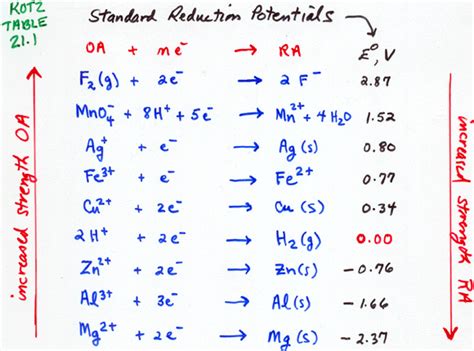 KOTZ
TABLE
21.1
Standard Reduction Potentials
OA + me⁻ → RA E°, V
F₂(g) + 2e⁻ → 2 F⁻ 2.87
MnO₄⁻ + 8H⁺ + 5e⁻ → Mn²⁺ + 4H₂O 1.52
Ag⁺ + e⁻ → Ag(s) 0.80
Fe³⁺ + e⁻ → Fe²⁺ 0.77
Cu²⁺ + 2e⁻ → Cu(s) 0.34
2H⁺ + 2e⁻ → H₂(g) 0.00
Zn²⁺ + 2e⁻ → Zn(s) -0.76
Al³⁺ + 3e⁻ → Al(s) -1.66
Mg²⁺ + 2e⁻ → Mg(s) -2.37
increased strength OA
increased strength RA